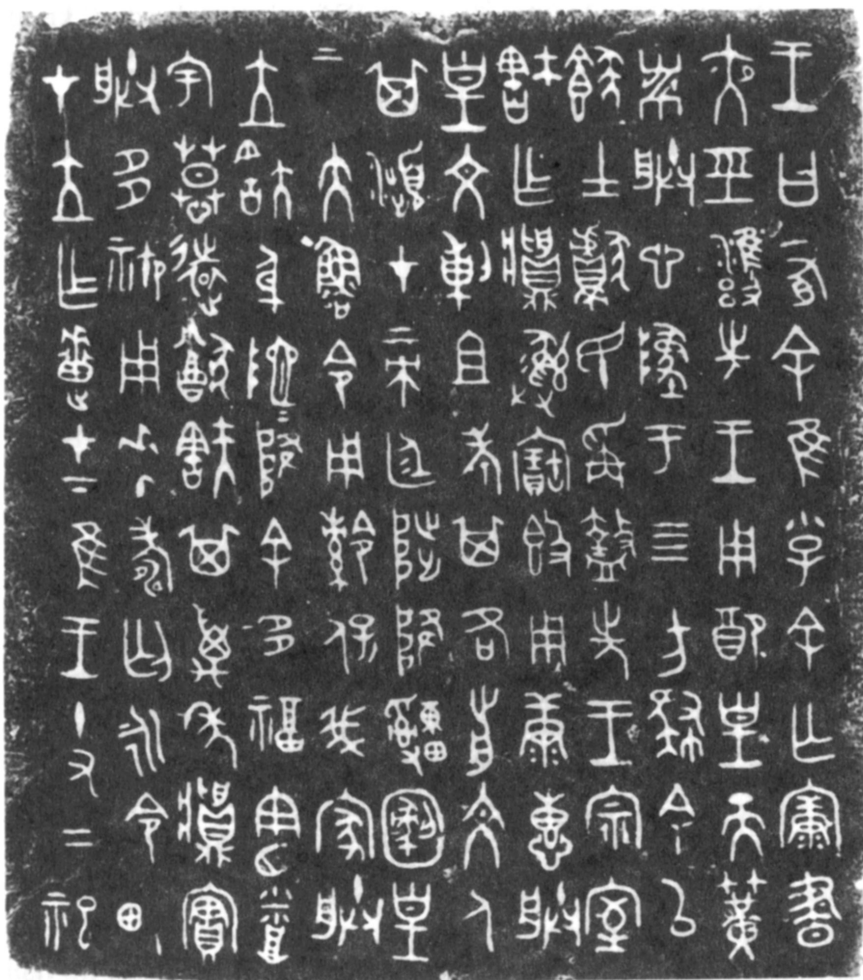 王曰有余隹小子余亡康晝
夜巠雝先王用配皇天簧
黹朕心墜于四方肆余以
䬤士獻民爯盩先王宗室
㝬乍䵼彝寶簋用康惠朕
皇文剌且考其各前文人
其瀕才帝廷陟降皇
帝大魯令用保我家朕
立㝬身阤=降余多福憲
宇慕遠猷㝬其萬年䵼實
朕多禦用𠦪壽匄永令畯
才立乍疐才下隹王十又二祀